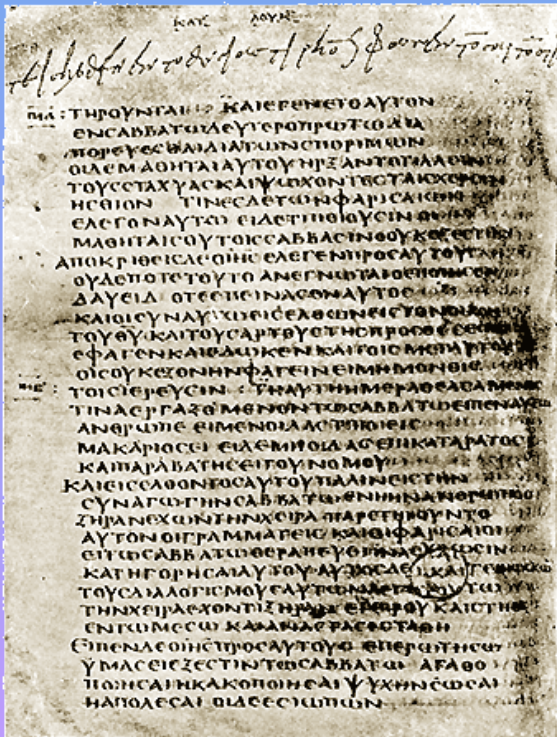 ΚΑΤ ΛΟΥΚ
ΤΗΡΟΥΝΤΑΙ ΚΑΙ ΕΓΕΝΕΤΟ ΑΥΤΟΝ
ΕΝ ΣΑΒΒΑΤΩ ΔΕΥΤΕΡΟΠΡΩΤΩ ΔΙΑ
ΠΟΡΕΥΕΣΘΑΙ ΔΙΑ ΤΩΝ ΣΠΟΡΙΜΩΝ
ΟΙ ΔΕ ΜΑΘΗΤΑΙ ΑΥΤΟΥ ΗΡΞΑΝΤΟ ΤΙΛΛΕΙΝ
ΤΟΥΣ ΣΤΑΧΥΑΣ ΚΑΙ ΨΩΧΟΝΤΕΣ ΤΑΙΣ ΧΕΡΣΙΝ
ΗΣΘΙΟΝ ΤΙΝΕΣ ΔΕ ΤΩΝ ΦΑΡΙΣΑΙΩΝ
ΕΛΕΓΟΝ ΑΥΤΩ ΕΙΔΕ ΤΙ ΠΟΙΟΥΣΙΝ ΟΙ
ΜΑΘΗΤΑΙ ΣΟΥ ΤΟΙΣ ΣΑΒΒΑΣΙΝ Ο ΟΥΚ ΕΞΕΣΤΙΝ
ΑΠΟΚΡΙΘΕΙΣ ΔΕ Ο ΙΗΣ ΕΛΕΓΕΝ ΠΡΟΣ ΑΥΤΟΥΣ
ΟΥΔΕΠΟΤΕ ΤΟΥΤΟ ΑΝΕΓΝΩΤΑΙ Ο ΕΠΟΙΗΣΕΝ
ΔΑΥΕΙΔ ΟΤΕ ΕΠΕΙΝΑΣΕΝ ΑΥΤΟΣ
ΚΑΙ ΟΙ ΣΥΝ ΑΥΤΩ ΕΙΣΕΛΘΩΝ ΕΙΣ ΤΟΝ ΟΙΚΟΝ
ΤΟΥ ΘΥ ΚΑΙ ΤΟΥΣ ΑΡΤΟΥΣ ΤΗΣ ΠΡΟΣΘΕΣΕΩΣ
ΕΦΑΓΕΝ ΚΑΙ ΕΔΩΚΕΝ ΚΑΙ ΤΟΙΣ ΜΕΤ ΑΥΤΟΥ
ΟΙΣ ΟΥΚ ΕΞΟΝ ΗΝ ΦΑΓΕΙΝ ΕΙ ΜΗ ΜΟΝΟΙΣ
ΤΟΙΣ ΙΕΡΕΥΣΙΝ ΤΗ ΑΥΤΗ ΗΜΕΡΑ ΘΕΑΣΑΜΕΝΟΣ
ΤΙΝΑ ΕΡΓΑΖΟΜΕΝΟΝ ΤΩ ΣΑΒΒΑΤΩ ΕΙΠΕΝ ΑΥΤΩ
ΑΝΘΡΩΠΕ ΕΙ ΜΕΝ ΟΙΔΑΣ ΤΙ ΠΟΙΕΙΣ
ΜΑΚΑΡΙΟΣ ΕΙ ΕΙ ΔΕ ΜΗ ΟΙΔΑΣ ΕΠΙΚΑΤΑΡΑΤΟΣ
ΚΑΙ ΠΑΡΑΒΑΤΗΣ ΕΙ ΤΟΥ ΝΟΜΟΥ
ΚΑΙ ΕΙΣΕΛΘΟΝΤΟΣ ΑΥΤΟΥ ΠΑΛΙΝ ΕΙΣ ΤΗΝ
ΣΥΝΑΓΩΓΗΝ ΣΑΒΒΑΤΩ ΕΝ Η ΗΝ ΑΝΘΡΩΠΟΣ
ΞΗΡΑΝ ΕΧΩΝ ΤΗΝ ΧΕΙΡΑ ΠΑΡΕΤΗΡΟΥΝΤΟ
ΑΥΤΟΝ ΟΙ ΓΡΑΜΜΑΤΕΙΣ ΚΑΙ ΟΙ ΦΑΡΙΣΑΙΟΙ
ΕΙ ΤΩ ΣΑΒΒΑΤΩ ΘΕΡΑΠΕΥΕΙ ΙΝΑ ΕΥΡΩΣΙΝ
ΚΑΤΗΓΟΡΗΣΑΙ ΑΥΤΟΥ ΑΥΤΟΣ ΔΕ
ΤΟΥΣ ΔΙΑΛΟΓΙΣΜΟΥΣ ΑΥΤΩΝ ΛΕΓΕΙ ΤΩ
ΤΗΝ ΧΕΙΡΑ ΕΧΟΝΤΙ ΞΗΡΑΝ ΕΓΕΙΡΟΥ ΚΑΙ ΣΤΗΘΙ
ΕΝ ΤΩ ΜΕΣΩ ΚΑΙ ΑΝΑΣΤΑΣ ΕΣΤΑΘΗ
ΕΙΠΕΝ ΔΕ Ο ΙΗΣ ΠΡΟΣ ΑΥΤΟΥΣ ΕΠΕΡΩΤΗΣΩ
ΥΜΑΣ ΕΙ ΕΞΕΣΤΙΝ ΤΩ ΣΑΒΒΑΤΩ ΑΓΑΘΟ
ΠΟΙΗΣΑΙ Η ΚΑΚΟΠΟΙΗΣΑΙ ΨΥΧΗΝ ΣΩΣΑΙ
Η ΑΠΟΛΕΣΑΙ ΟΙ ΔΕ ΕΣΙΩΠΩΝ